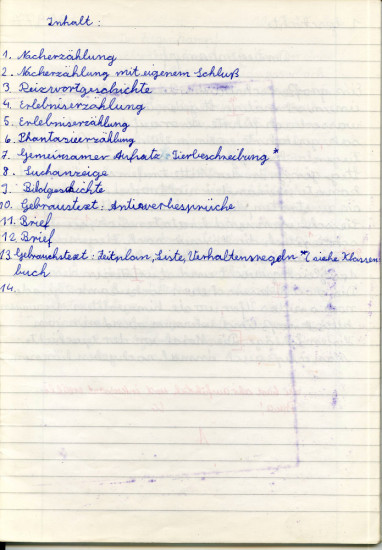 Inhalt:
1. Nacherzählung
2. Nacherzählung mit eigenem Schluß
3. Reizwortgeschichte
4. Erlebniserzählung
5. Erlebniserzählung
6. Phantasieerzählung
7. Gemeinsamer Aufsatz Tierbeschreibung *
8. Suchanzeige
9. Bildgeschichte
10. Gebraustext: Antiwerbesprüche
11. Brief
12. Brief
13. Gebrauchstext: Zeitplan, Liste, Verhaltensregeln * (siehe Klassen
buch
14.